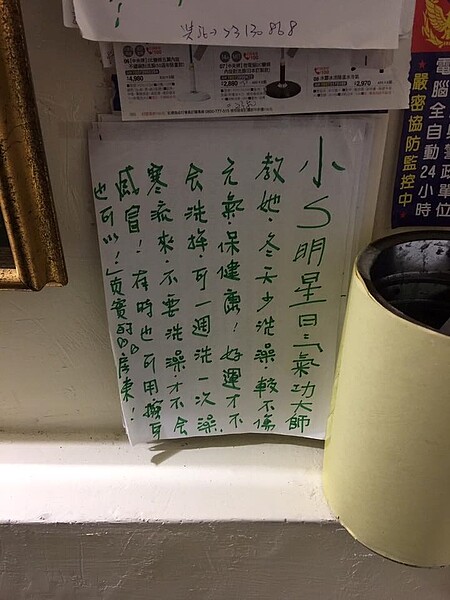 4,980
2,880
2,970
與警政單位
電腦全自動24小時
★嚴密協防監控中★
小S明星曰:氣功大師
教她·冬天少洗澡·較不傷
元氣·保健康!好運才不
会洗掉·可一週洗一次澡
寒流來·不要洗澡·才不会
感冒!有時也可用擦身
也可以!」 房東!